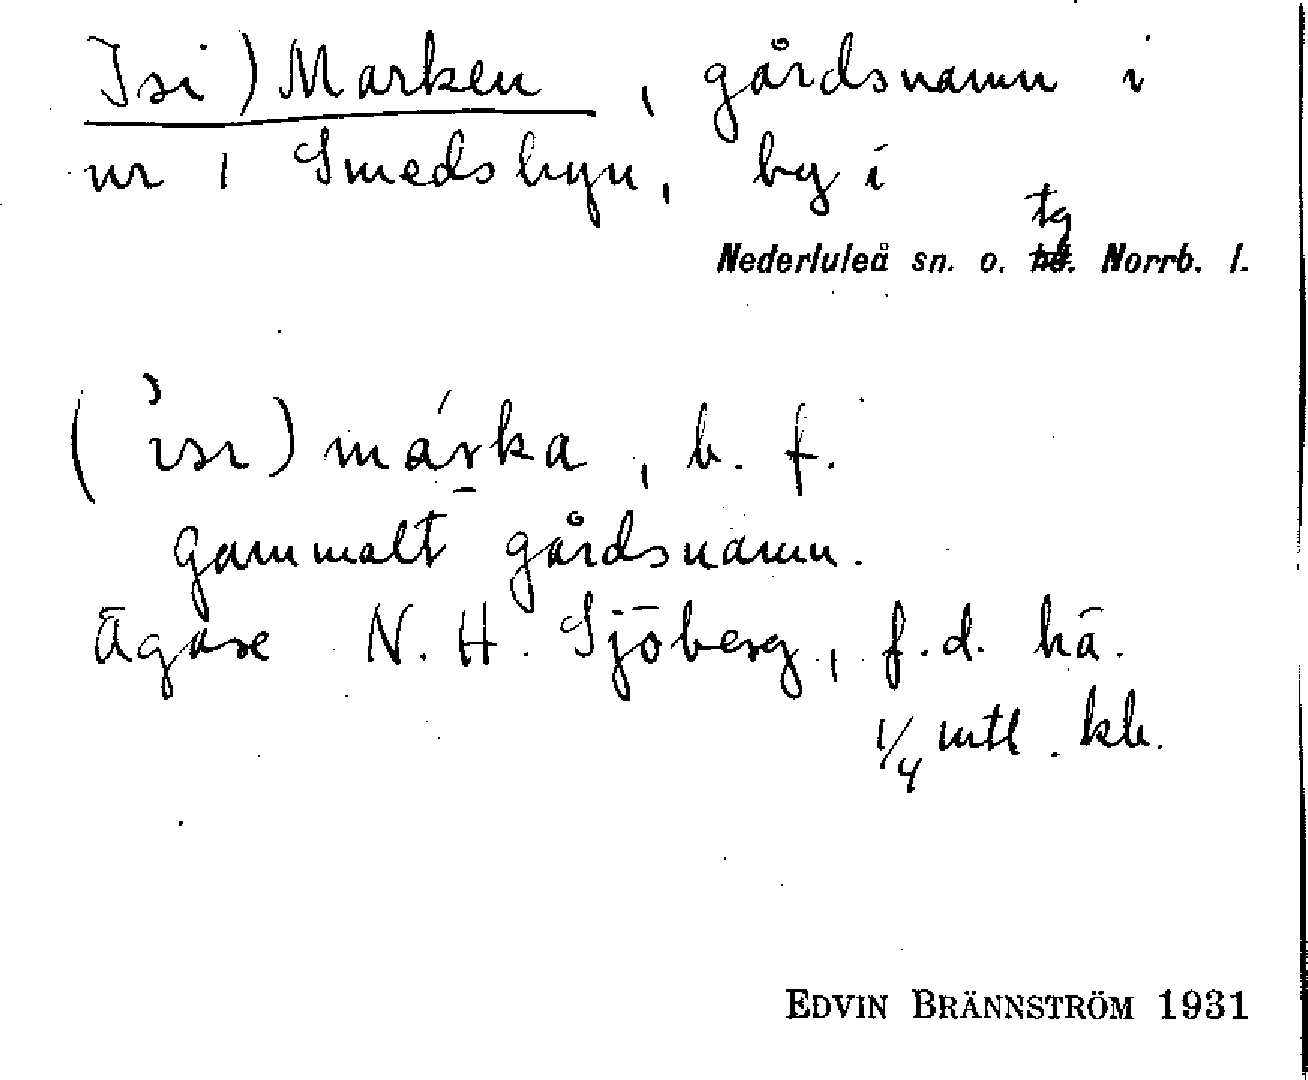 Isi) Marken, gårdsnamn i
nr 1 Smedsbyn, by i
tg
Nederluleå sn. o. hd. Norrb. l.
(ìsı) márka, b. f.
gammalt gårdsnamn.
Ägare N. H. Sjöberg, f. d. hä.
1/4 mtl. kh.
EDVIN BRÄNNSTRÖM 1931